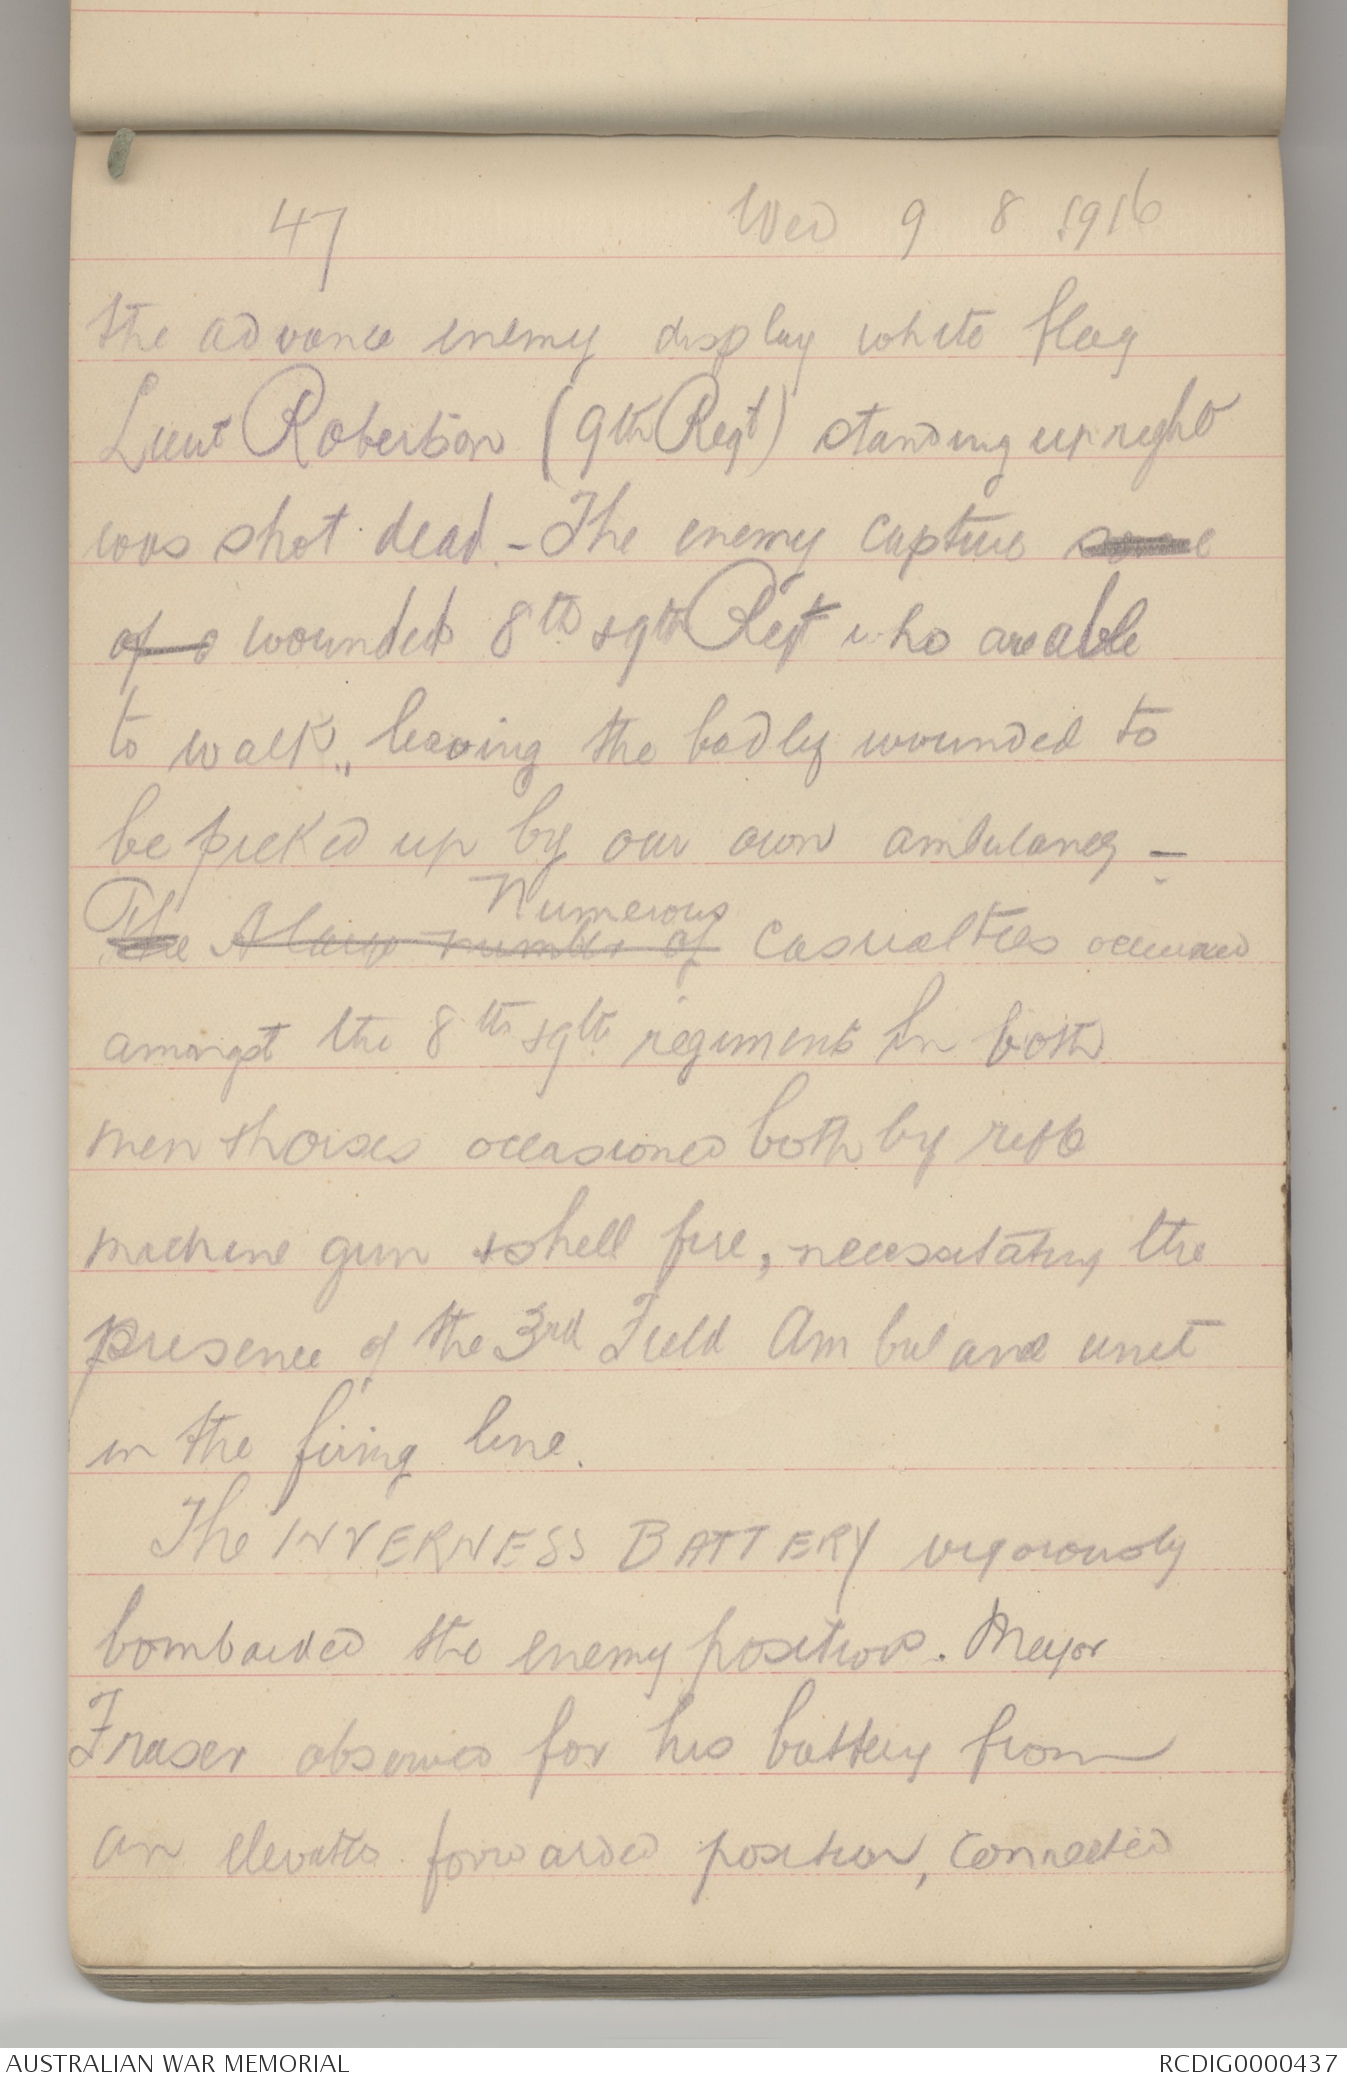 47 Wed 9 8 1916
the advance enemy display white flag
Lieut Robertson (9th Regt) standing upright
was shot dead. - The enemy capture some
of a wounded 8th & 9th Regt who are able
to walk, leaving the badly wounded to
be picked up by our own ambulance -
Numerous
The A large number of casualties occurred
amongst the 8th & 9th regiments in both
men & horses occasioned both by rifle
machine gun & shell fire, necessitating the
presence of the 3rd Field Ambulance unit
in the firing line.
The INVERNESS BATTERY vigorously
bombarded the enemy positions. Major
Fraser observed for his battery from
an elevated forwarded position, connected
AUSTRALIAN WAR MEMORIAL RCDIG0000437